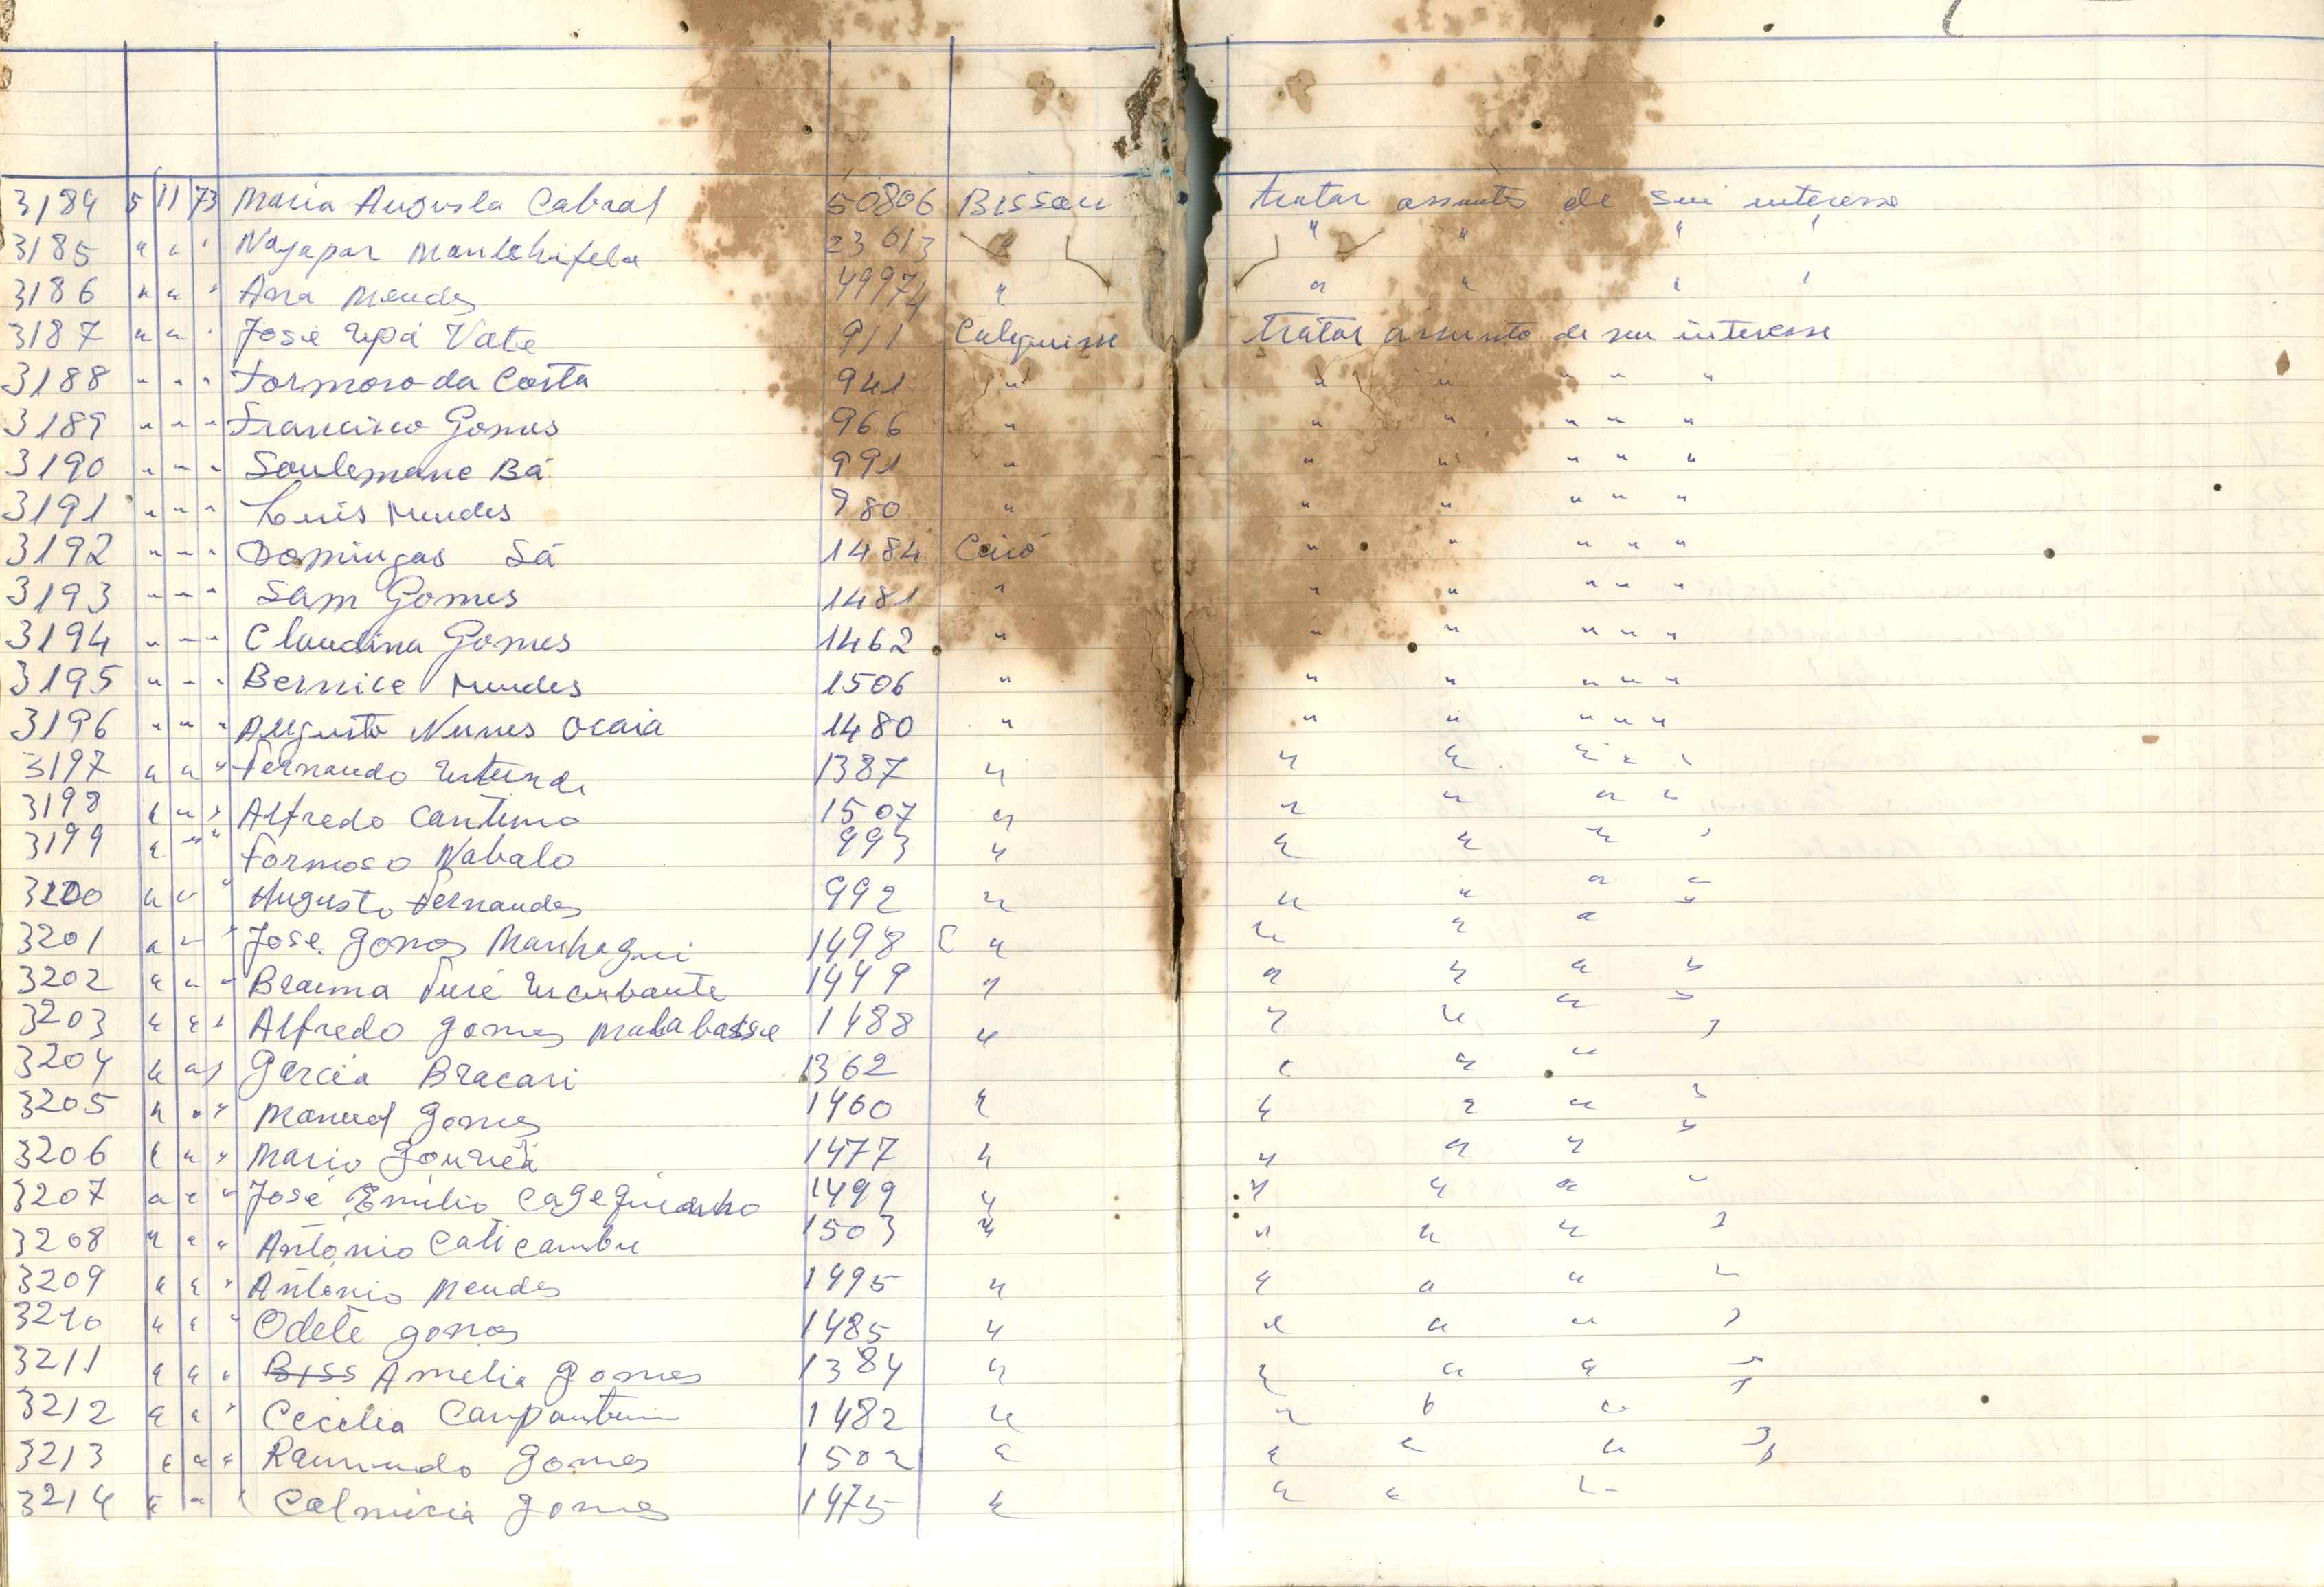 3184 5 11 73 Maria Augusta Cabral 50806 Bissau tratar assunto de seu interesse
3185 " " " Nayapar 23613 " " " " "
3186 " " " Ana Mendes 49974 " " " " "
3187 " " " José Upá Vate 911 Calequisse tratar assunto de seu interesse
3188 " " " Formoso da Costa 941 " " " " " "
3189 " " " Francisco Gomes 966 " " " " " "
3190 " " " Soulemane Bá 991 " " " " " "
3191 " " " Luis Mendes 980 " " " " " "
3192 " " " Domingas Sá 1484 Caió " " " " "
3193 " " " Sam Gomes 1481 " " " " " "
3194 " " " Claudina Gomes 1462 " " " " " "
3195 " " " Bernice Mendes 1506 " " " " " "
3196 " " " Augusto Nunes Ocaia 1480 " " " " " "
3197 " " " Fernando 1387 " " " " " "
3198 " " " Alfredo Cantimo 1507 " " " " "
3199 " " " Formoso Nabalo 993 " " " " "
3200 " " " Augusto Fernandes 992 " " " " "
3201 " " " José Gomes Manhagui 1498 C " " " " "
3202 " " " Braima Turé 1449 " " " " "
3203 " " " Alfredo gomes Malabassie 1488 " " " " "
3204 " " " Garcia Bracari 1362 " " " "
3205 " " " Manuel Gomes 1460 " " " " "
3206 " " " Mario 1477 " " " " "
3207 " " " José Emilio 1499 " " " " "
3208 " " " António Caticambe 1503 " " " " "
3209 " " " António Mendes 1495 " " " " "
3210 " " " Odete gomes 1485 " " " " "
3211 " " " Biss Amelia gomes 1384 " " " " "
3212 " " " Cecilia 1482 " " " " "
3213 " " " Raimundo gomes 1502 " " " " "
3214 " " " gomes 1475 " " " "